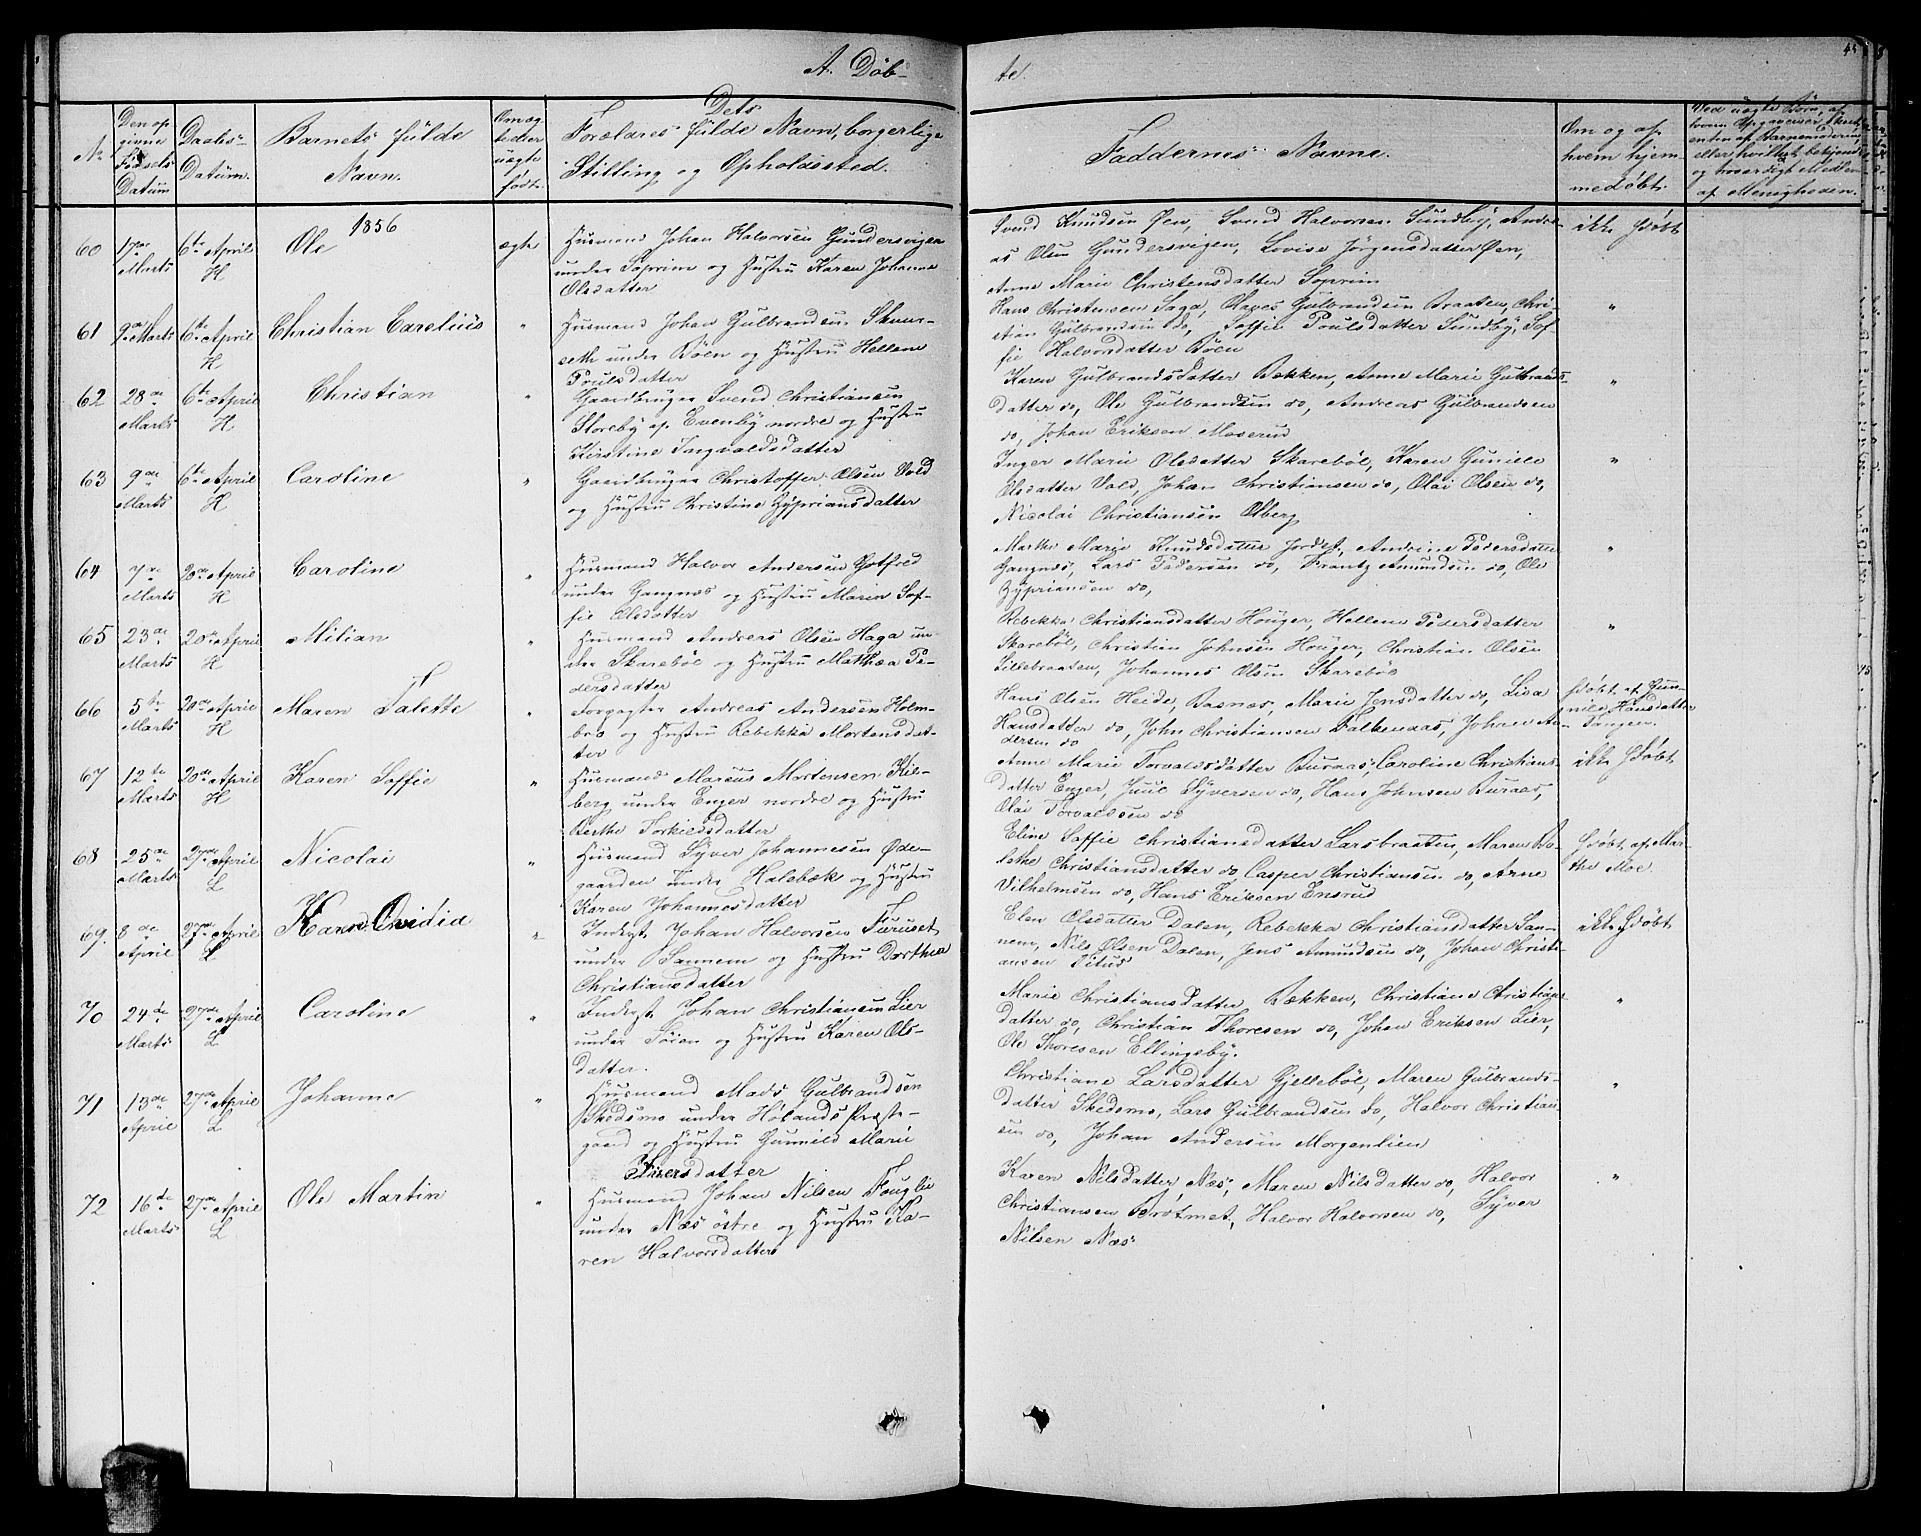 A. Døb-
te.
45
No
Den op
givne
Fødsels
Datum
Daabs-
Datum.
Barnets fulde
Navn.
Om æg
te eller
uægte
født.
Dets
Forældres fulde Navn, borgerlige
Stilling og Opholdssted.
Faddernes Navne.
Om og af
hvem hjem-
medøbt.
Ved uægte Børn, af
af Menigheden.
1856
60 17de Marts 6te April H Ole ægte
Husmand Johan Halvorsen Gundersvigen
under Soprim og Hustru Karen Johanne
Olsdatter
Svend Knudsen Øen, Svend Halvorsen Sundby, Andre-
as Olsen Gundersvigen, Lovise Jørgensdatter Øen,
Anne Marie Christensdatter Soprim
ikke hjdøbt
61 9de Marts 6te April H Christian Carelius "
Husmand Johan Gulbrandsen Skuur-
seth under Böen og Hustru Hellene
Poulsdatter
Hans Christensen Saga, Gulbrandsen Braaten, Chri-
stian Gulbrandsen do, Soffie Poulsdatter Sundby, Sof-
fie Halvorsdatter Böen
"
62 28de Marts 6te April H Christian "
Gaardbruger Svend Christiansen
Storeby af Evenby nordre og Hustru
Kirstine Ingvaldsdatter
Karen Gulbrandsdatter Bækken, Anne Marie Gulbrands-
datter do, Ole Gulbrandsen do, Andreas Gulbrandsen
do, Johan Eriksen Moserud
"
63 9de Marts 6te April H Caroline "
Gaardbruger Christoffer Olsen Vold
og Hustru Christine Zypriansdatter
Inger Marie Olsdatter Skareböl, Karen Guniele
Olsdatter Vold, Johan Christiansen do, Olai Olsen do,
Nicolai Christiansen Olberg
"
64 7de Marts 20de April H Caroline "
Husmand Halvor Andersen Gotfred
under Gangnæs og Hustru Maren Sof-
fie Olsdatter
Marthe Marie Knudsdatter Jordet, Andrine Pedersdatter
Gangnæs, Lars Pedersen do, Frantz Amundsen do, Ole
Zypriansen do,
"
65 23de Marts 20de April H Milian "
Husmand Andreas Olsen Haga un-
der Skareböl og Hustru Matthea Pe-
dersdatter
Rebekka Christiansdatter Houger, Hellene Pedersdatter
Skareböl, Christian Johnsen Houger, Christian Olsen
Lillebraaten, Johannes Olsen Skareböl
"
66 5te Marts 20de April H Maren Talette "
Forpagter Andreas Andersen Holm-
bro og Hustru Rebekka Mortensdat-
ter
Hans Olsen Heide, Basnæs, Marie Jensdatter do, Lisa
Hansdatter do, John Christiansen Falkenaas, Johan An-
dersen do
hjdøbt af Gun-
nild Hansdatter
Tangen.
67 12te Marts 20de April H Karen Soffie "
Husmand Marcus Mortensen Kiel-
berg under Enger nordre og Hustru
Berthe Torkieldsdatter
Anne Marie Torvaldsdatter Buraas, Caroline Christians-
datter Enger, Juul Syversen do, Hans Johnsen Buraas,
Olai Torvaldsen do
ikke hjdøbt
68 25de Marts 27de April L Nicolai "
Husmand Syver Johannesen Øde-
gaarden under Halebæk og Hustru
Karen Johannesdatter
Eline Soffie Christiansdatter Larsbraaten, Maren Bo-
lethe Christiansdatter do, Casper Christiansen do, Arne
Vilhelmsen do, Hans Eriksen Ensrud
hjdøbt af Mar-
the Moe.
69. 8de April 27de April L Karen Ovidia "
Inderst Johan Halvorsen Furuset
under Sannem og Hustru Dorthea
Christiansdatter
Elen Olsdatter Dalen, Rebekka Christiansdatter San-
nem, Nils Olsen Dalen, Jens Amundsen do, Johan Christi-
ansen Titus
ikke hjdøbt
70 24de Marts 27de April L Caroline "
Inderst Johan Christiansen Lier
under Töien og Hustru Karen Ols-
datter.
Marie Christiansdatter Bækken, Christiane Christians-
datter do, Christian Thoresen do, Johan Eriksen Lier,
Ole Thoresen Ellingsby.
"
71 13de April 27de April L Johanne "
Husmand Mads Gulbrandsen
Skedsmo under Hølands Præste-
gaard og Hustru Gunnild Marie
Iversdatter
Christiane Larsdatter Gjelleböl, Maren Gulbrands-
datter Skedsmo, Lars Gulbrandsen do, Halvor Christian-
sen do, Johan Andersen Morgenlien
"
72 16de Marts 27de April L Ole Martin "
Husmand Johan Nilsen Fouglie
under Næs östre og Hustru Ka-
ren Halvorsdatter
Karen Nilsdatter Næs, Maren Nilsdatter do, Halvor
Christiansen Brotmet, Halvor Halvorsen do, Syver
Nilsen Næs
"